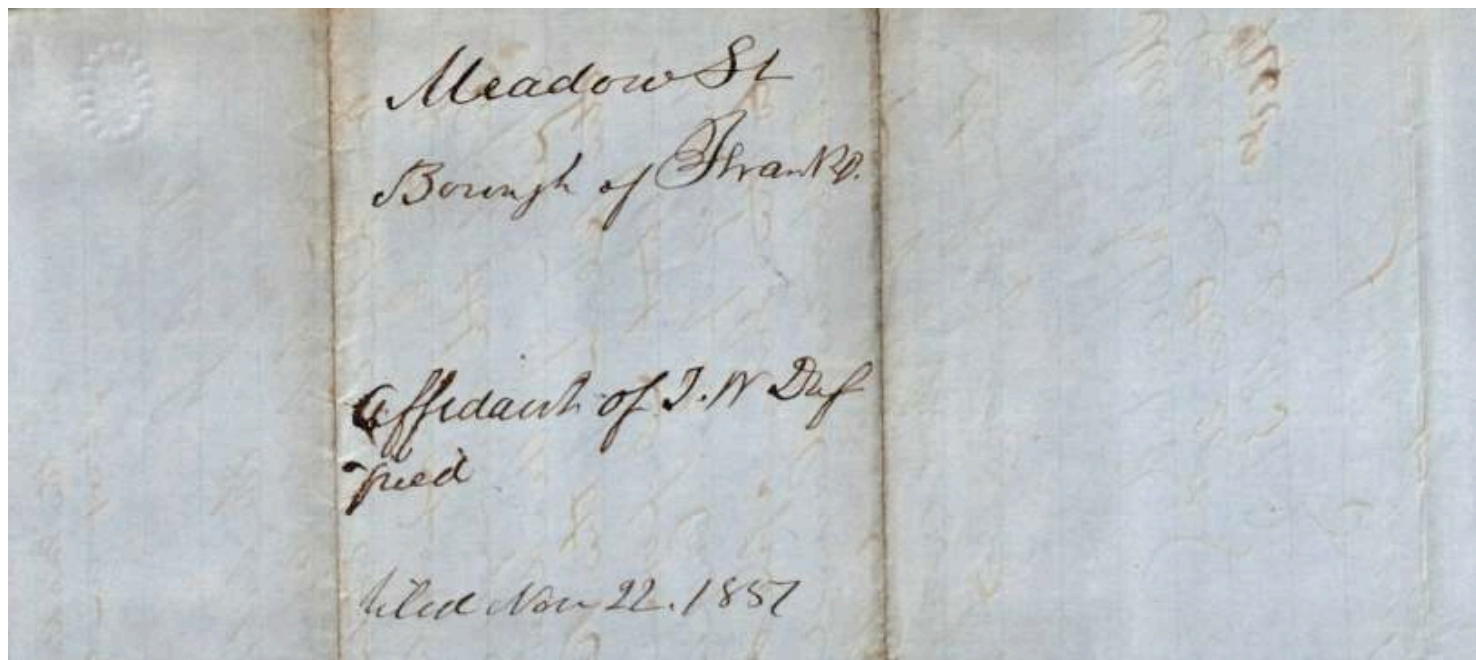 Meadow St
Borough of Frankd.
Affidavit of J. W Duf
field
Filed Nov 22. 1851